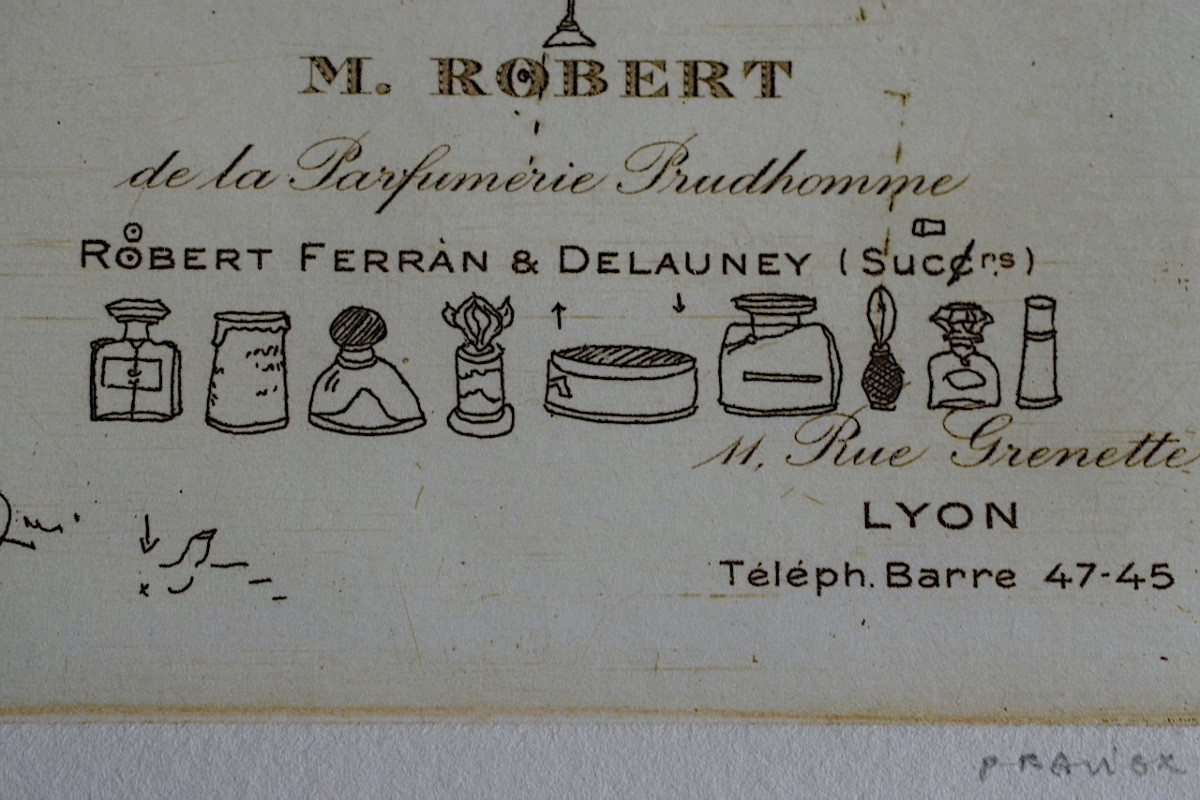 M. ROBERT
de la Parfumérie Prudhomme
ROBERT FERRÀN & DELAUNEY (Succrs)
11, Rue Grenette
LYON
Téléph. Barre 47-45